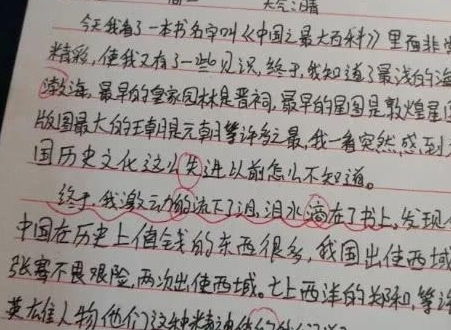 天气:晴
今天我看了一本书名字叫《中国之最大百科》里面非常
精彩,使我又有了一些见识,终于,我知道了最浅的海
渤海,最早的皇家园林是晋祠,最早的星图是敦煌星
版图最大的王朝是元朝等许多之最,我一看突然感到
国历史文化这么先进以前怎么不知道。
终于,我激动的流下了泪,泪水滴在了书上,发现
中国在历史上值钱的东西很多,我国出使西域
张骞不畏艰险,两次出使西域。七上西洋的郑和,等
英雄人物他们这种精神